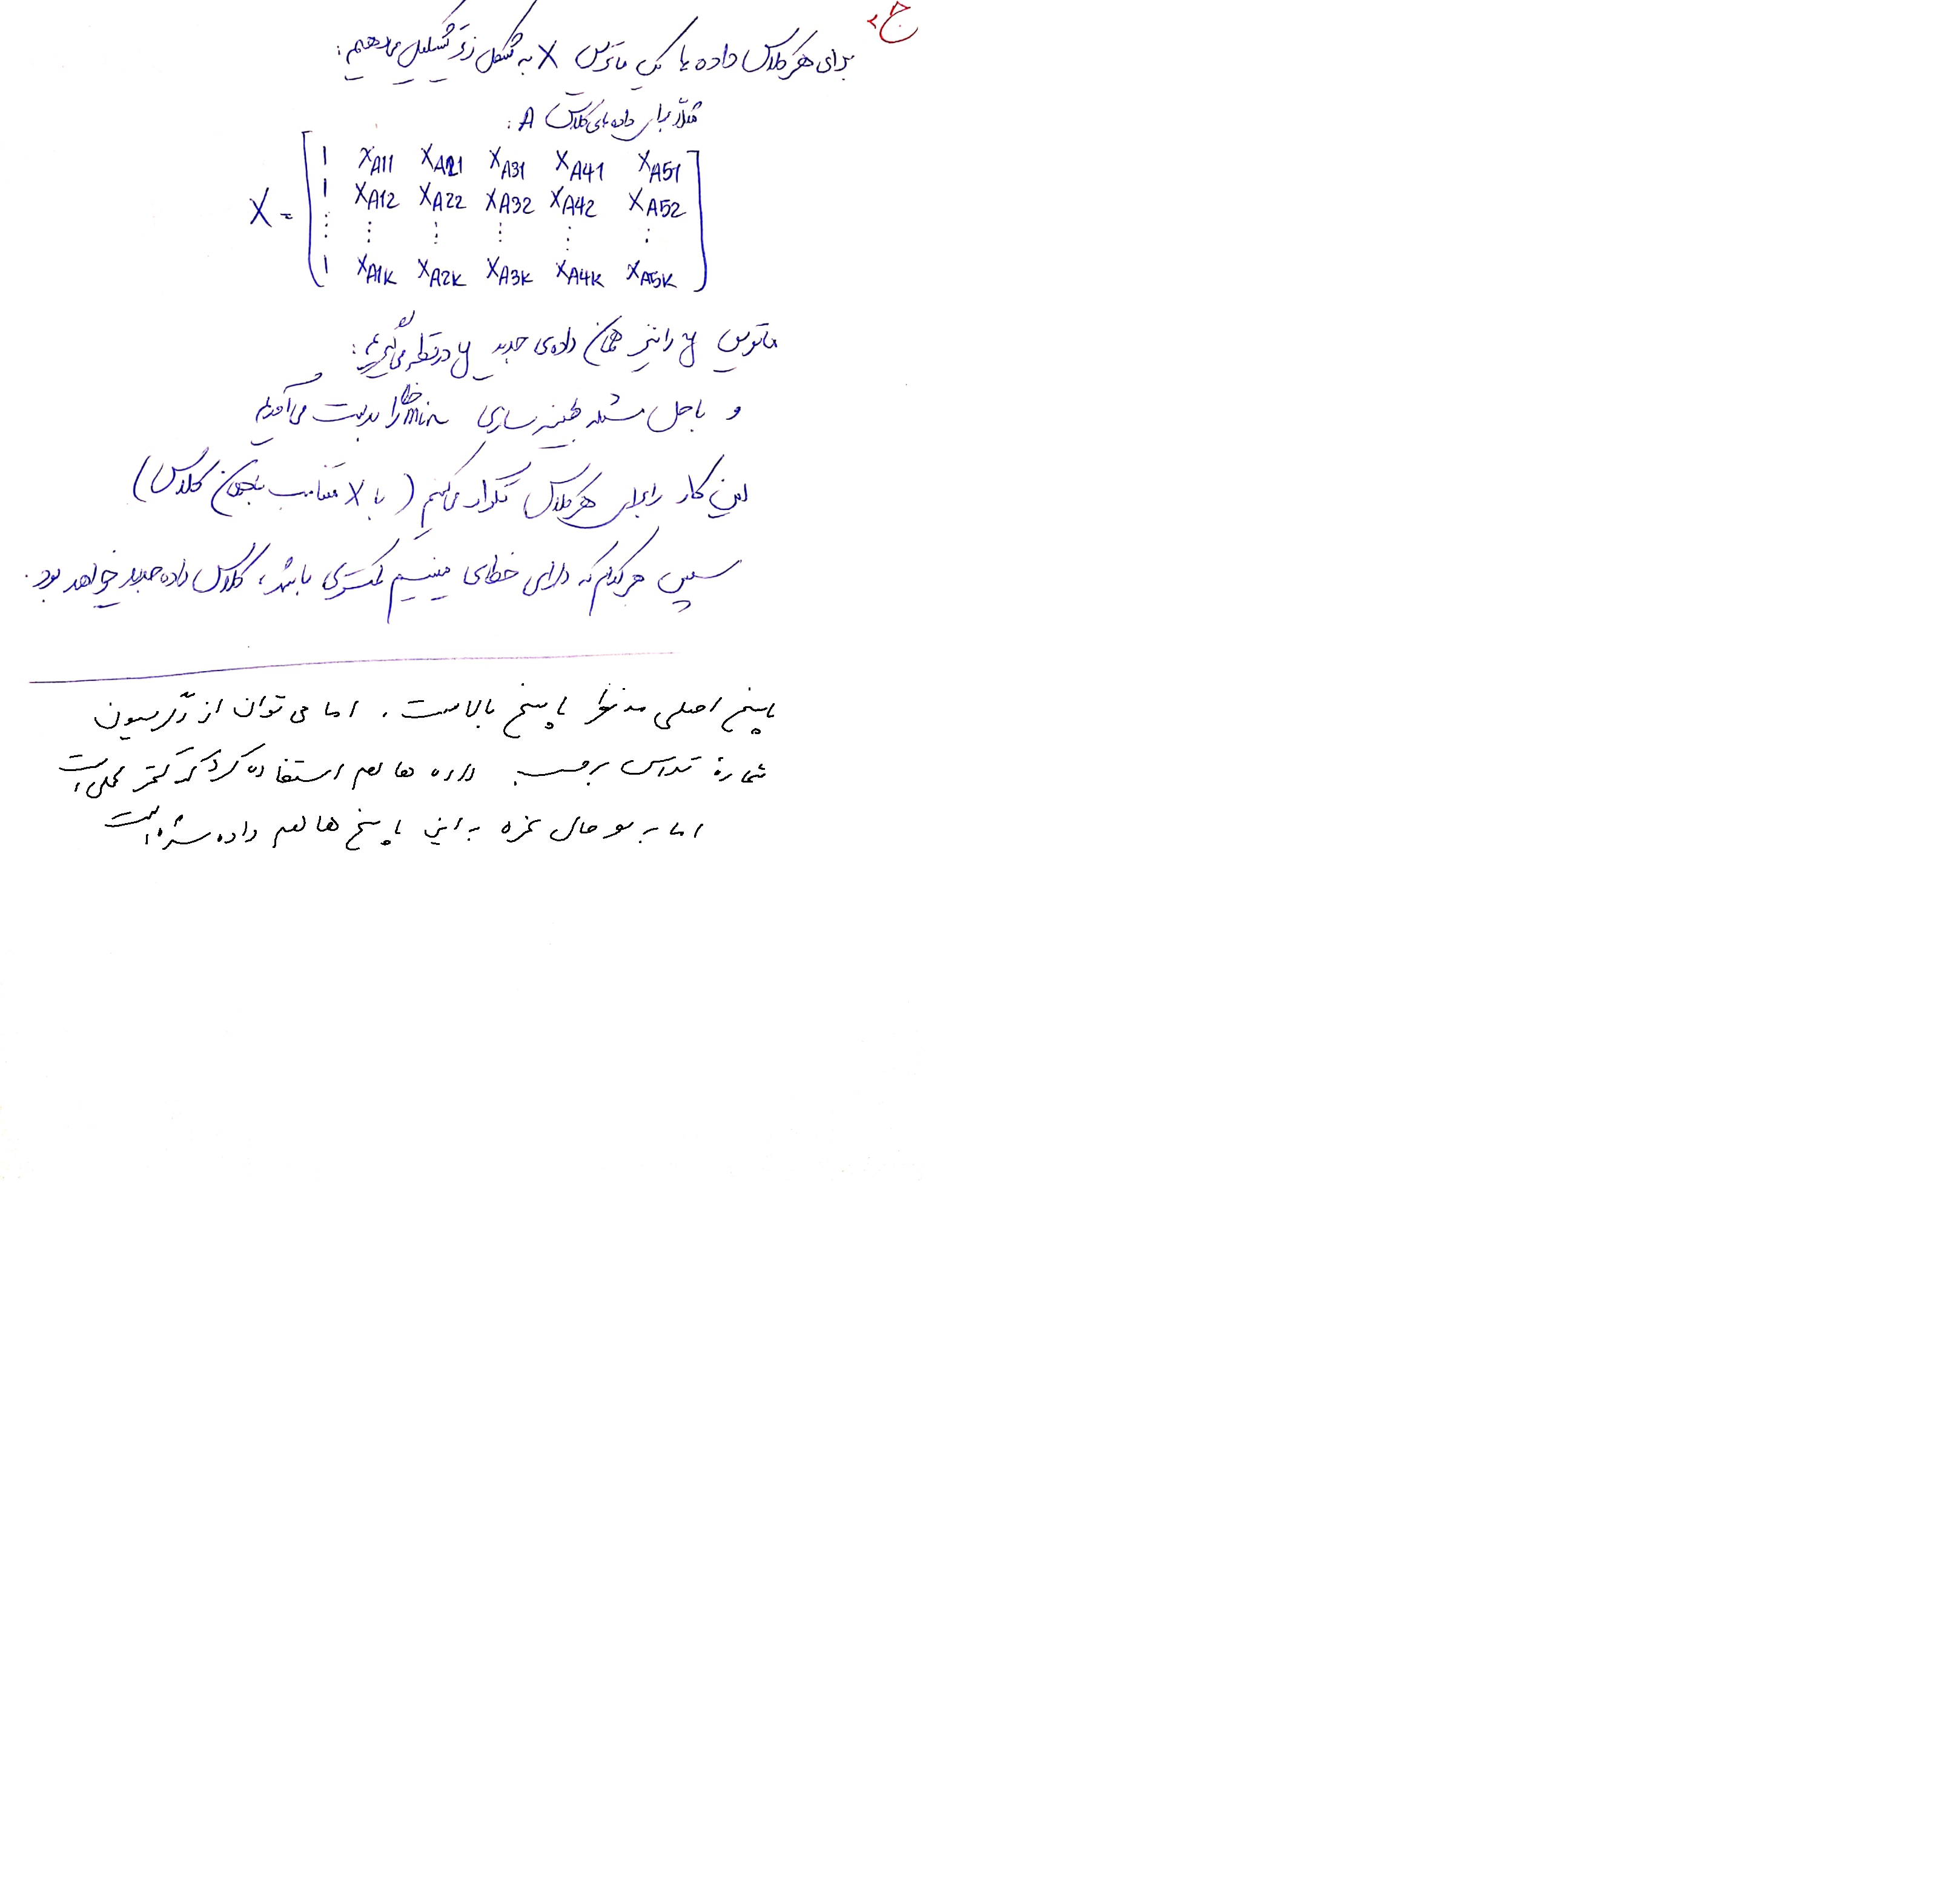 ج ۲
برای هر کلاس داده ها یک ماترس X به شکل زیر تشکیل می دهیم:
مثلاً برای داده های کلاس A:
X = [ 1 X_A11 X_A21 X_A31 X_A41 X_A51
1 X_A12 X_A22 X_A32 X_A42 X_A52
⋮ ⋮ ⋮ ⋮ ⋮ ⋮
1 X_A1K X_A2K X_A3K X_A4K X_A5K ]
ماترس y را نیز همان داده ی جدید y در نظر می گیریم:
و با حل مسئله بهینه سازی خطا min را بدست می آوریم
این کار را برای هر کلاس تکرار می کنیم (با X متناسب با همان کلاس)
سپس هر کدام که دارای خطای مینیمم کمتری باشد، کلاس داده جدید خواهد بود.
پاسخ اصلی مد نظر پاسخ بالاست. اما می توان از رگرسیون
شماره کلاس برحسب داده ها هم استفاده کرد که کمتر عملی است
اما به هر حال نمره به این پاسخ ها هم داده شده است